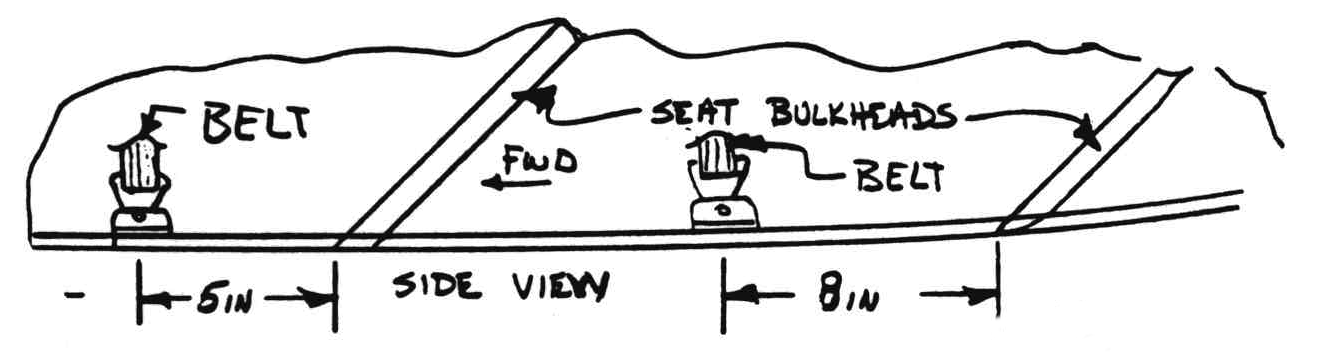 BELT
SEAT BULKHEADS
FWD
BELT
5IN
SIDE VIEW
8IN